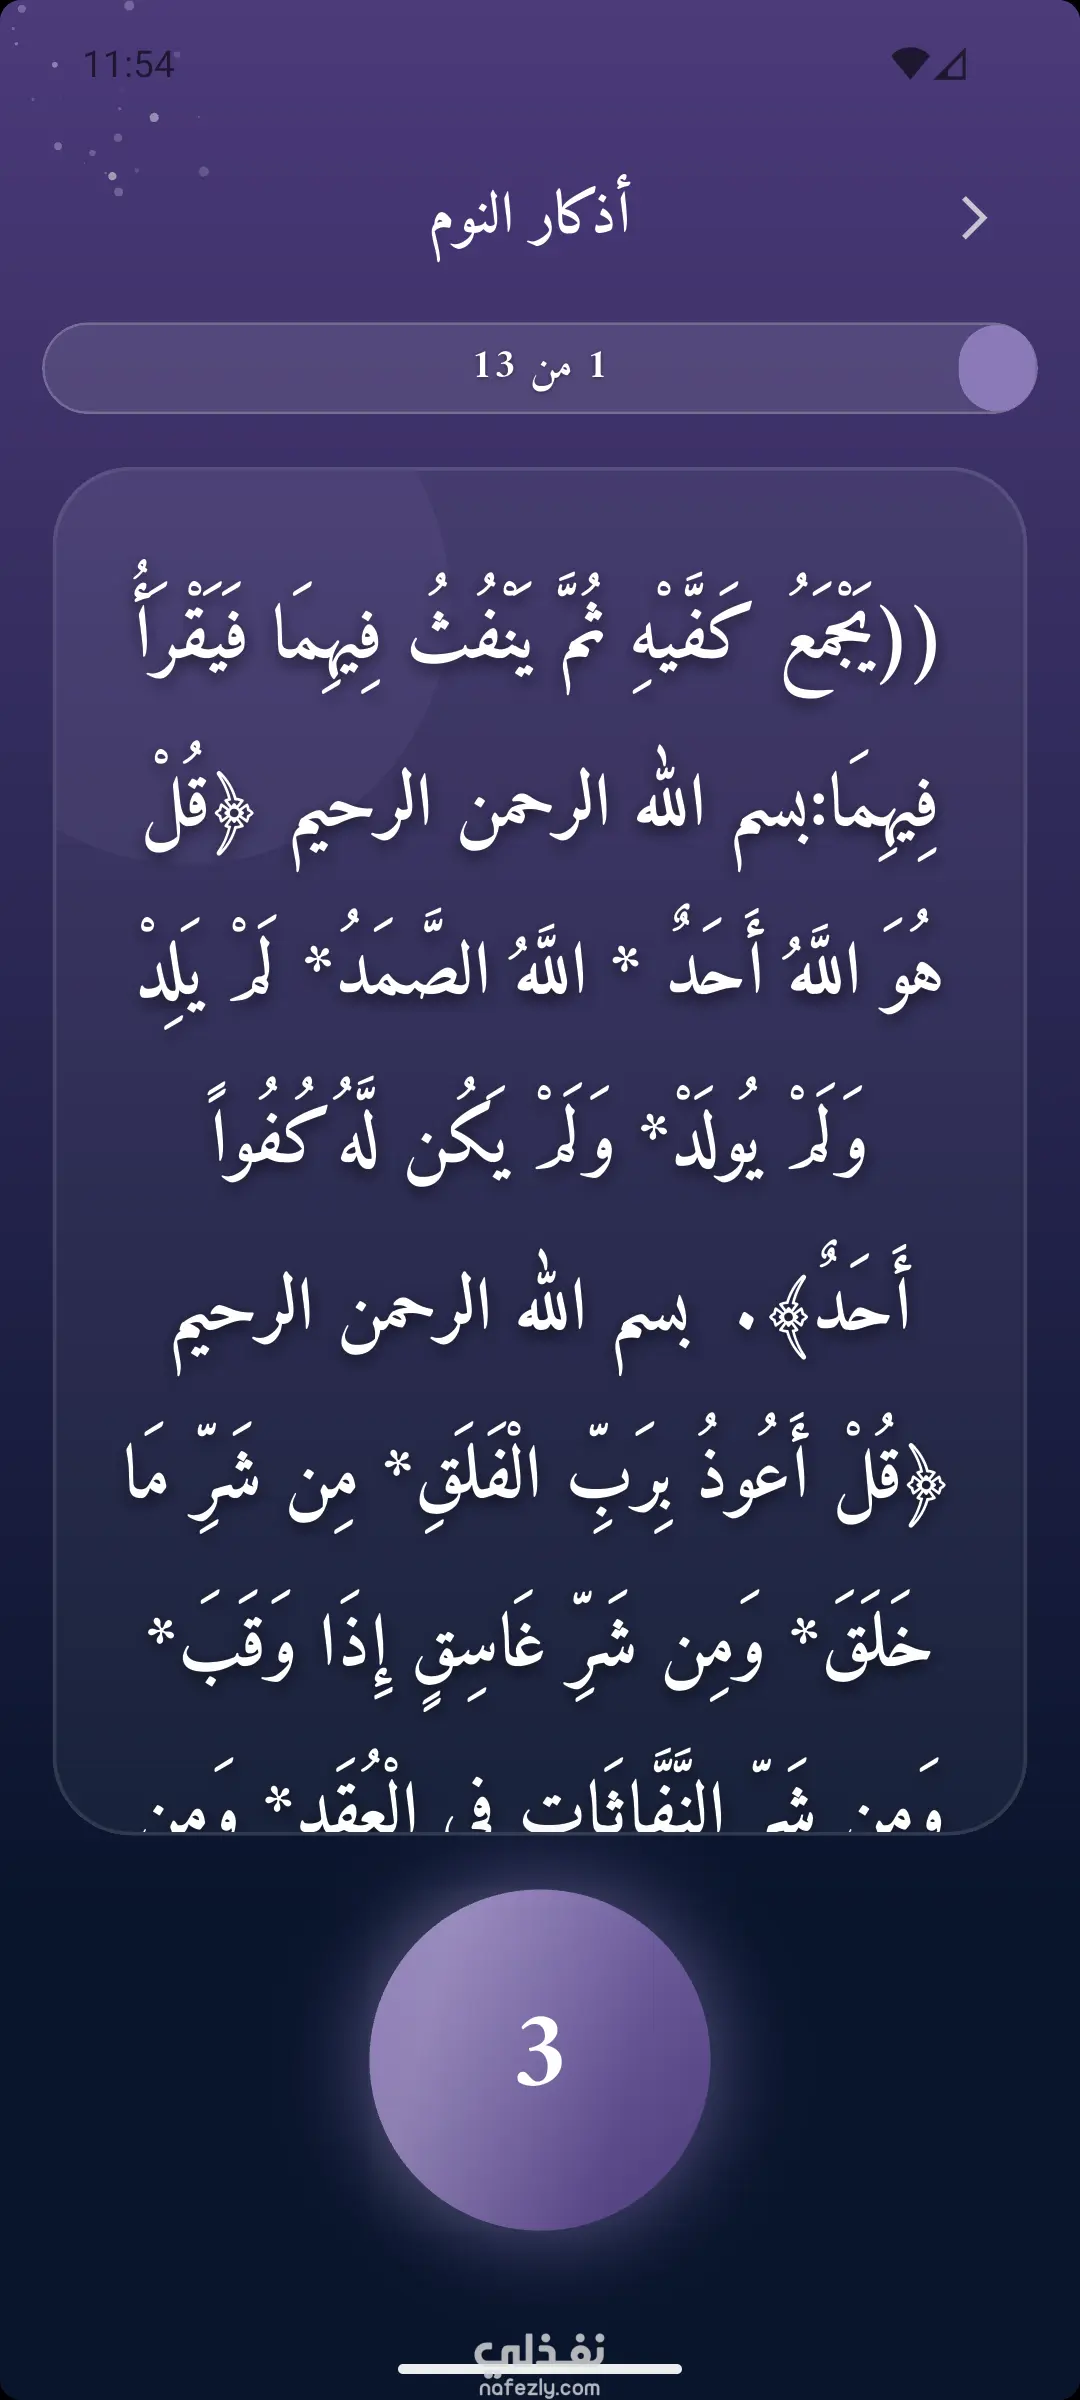 11:54
أذكار النوم
1 من 13
((يَجْمَعُ كَفَّيْهِ ثُمَّ يَنْفُثُ فِيهِمَا فَيَقْرَأُ
فِيهِمَا:بسم الله الرحمن الرحيم ﴿قُلْ
هُوَ اللَّهُ أَحَدٌ * اللَّهُ الصَّمَدُ* لَمْ يَلِدْ
وَلَمْ يُولَدْ* وَلَمْ يَكُن لَّهُ كُفُواً
أَحَدٌ﴾. بسم الله الرحمن الرحيم
﴿قُلْ أَعُوذُ بِرَبِّ الْفَلَقِ* مِن شَرِّ مَا
خَلَقَ* وَمِن شَرِّ غَاسِقٍ إِذَا وَقَبَ*
وَمِن شَرِّ النَّفَّاثَاتِ فِي الْعُقَدِ* وَمِن
3
نفذلي
nafezly.com